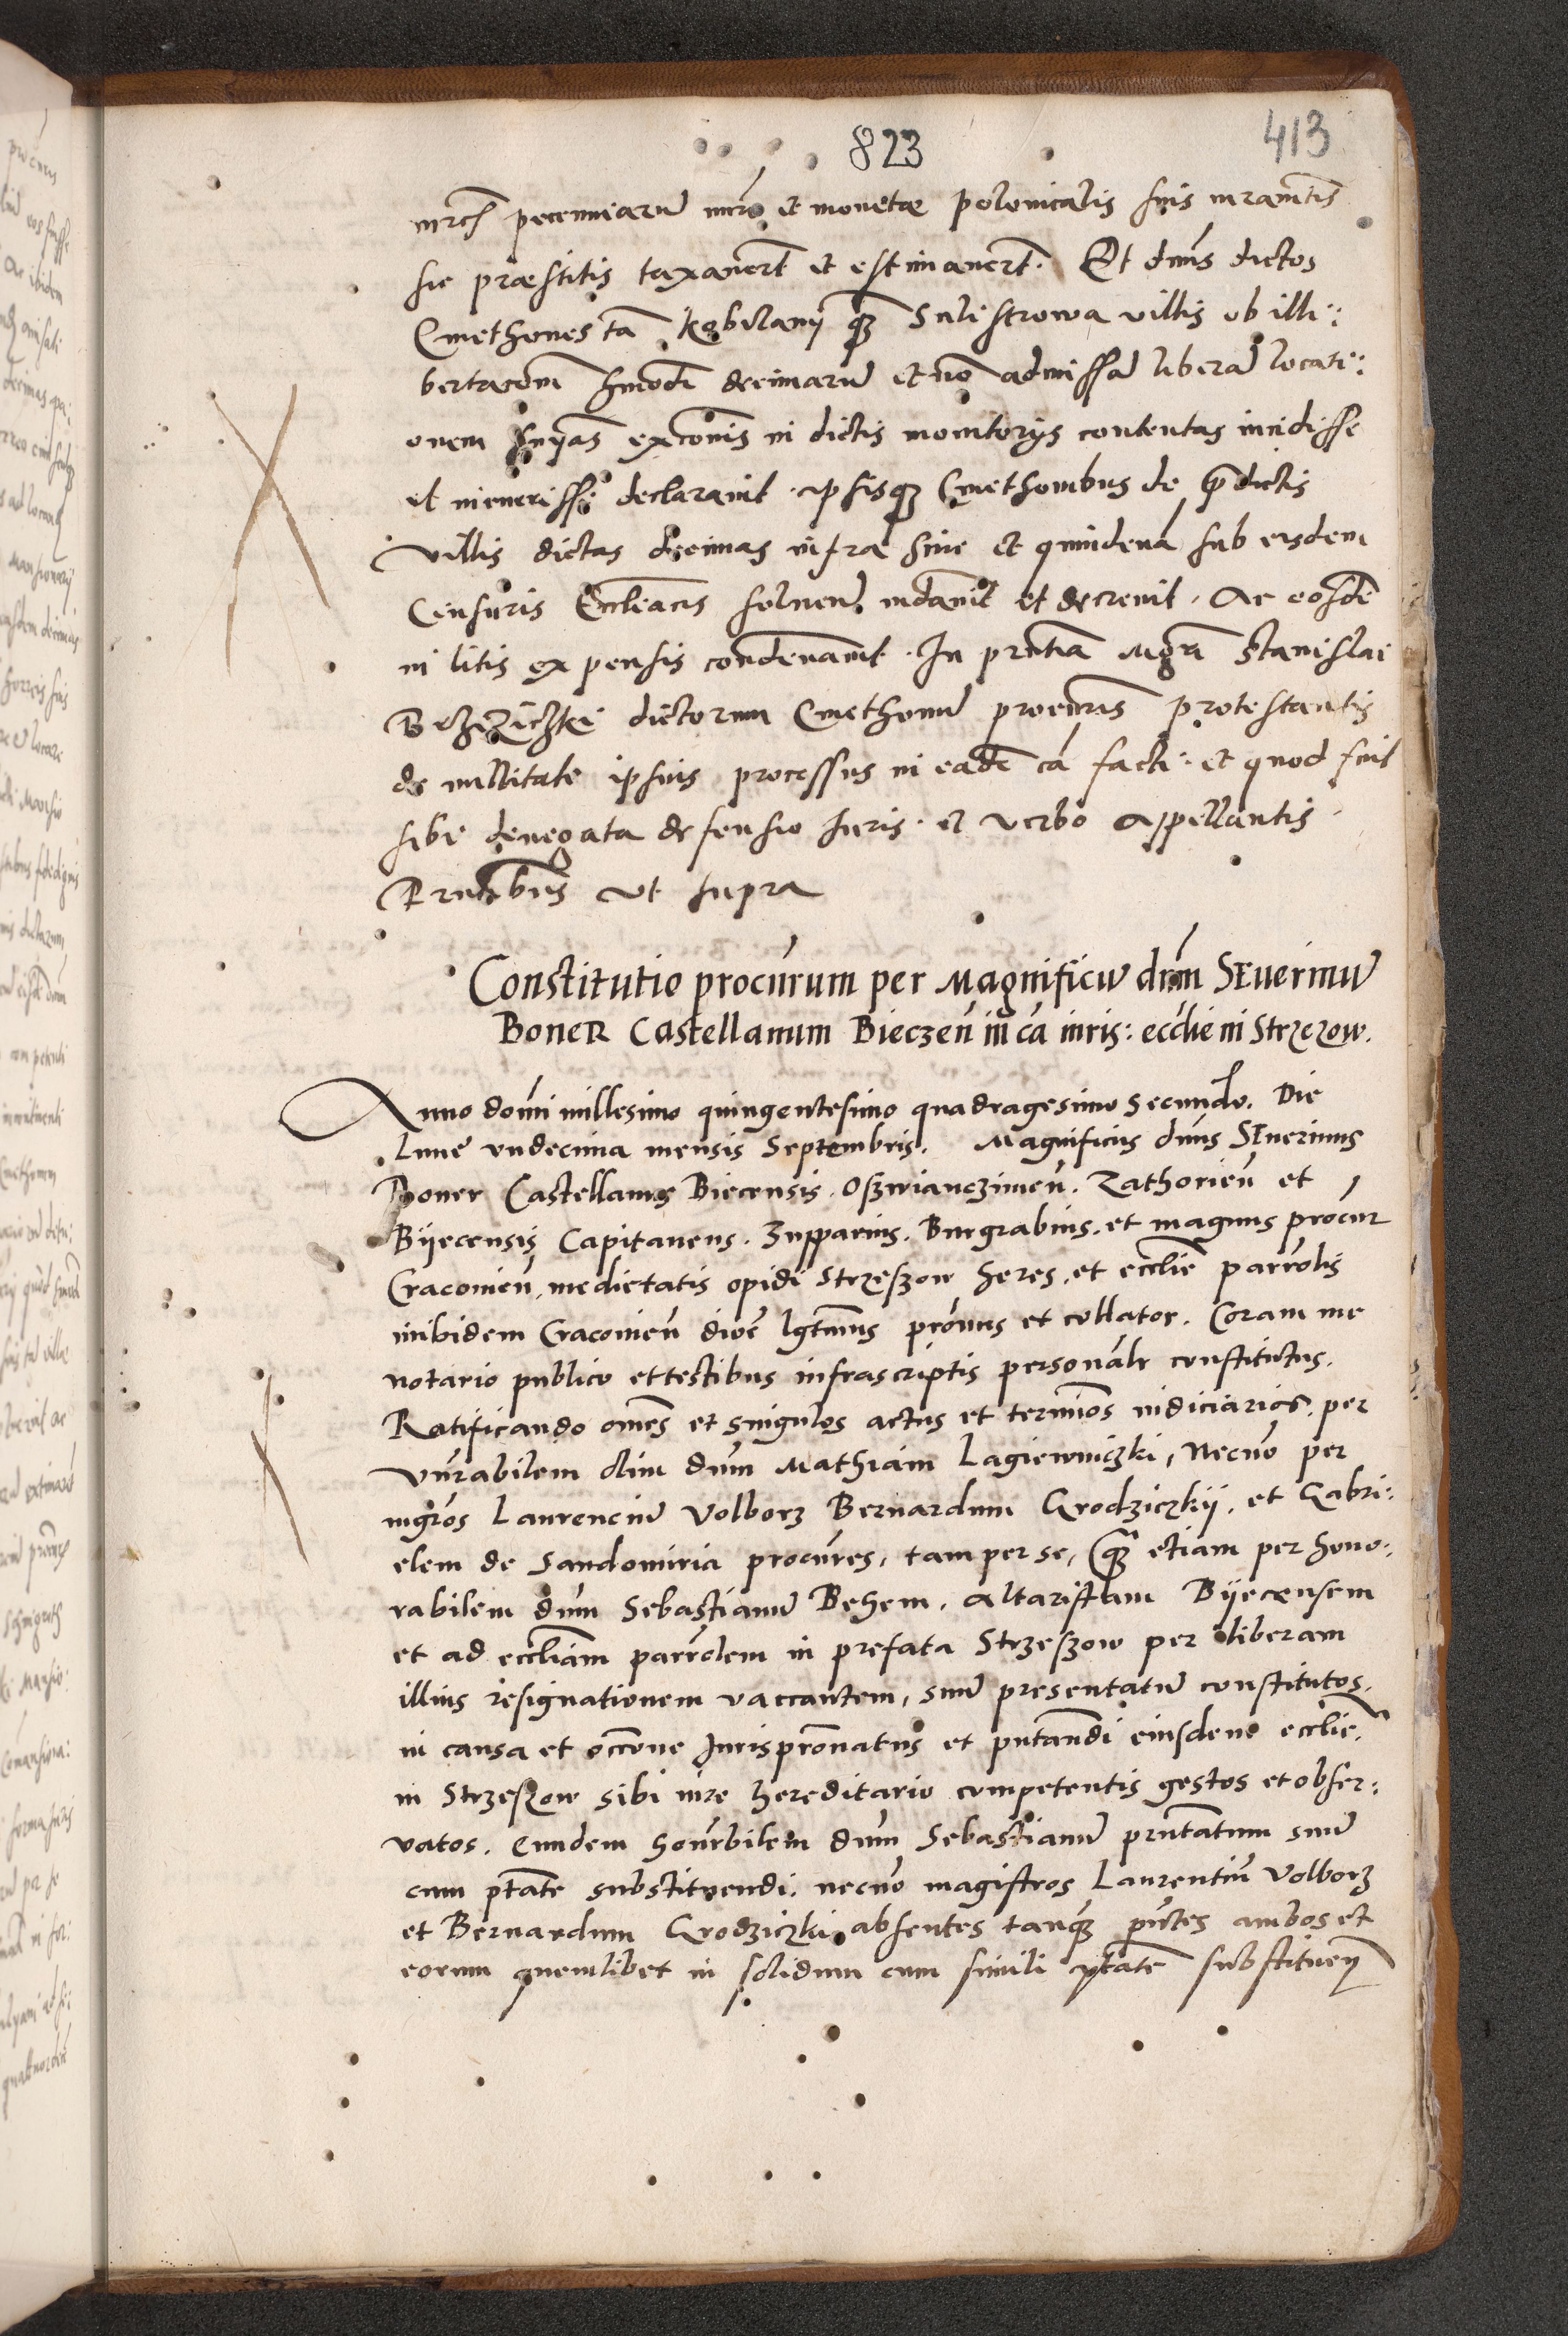 823
413
mrcs pecuniarum mri et monetae polonicalis suis iuramtis
sic praestitis taxavert et estimavert. Et dnus dictos
Cmethones ta Kobilany qz Sulistrowa villis ob illi:
bertacom hmodi decimarum et no admissa libera locati:
onem snyas exconis in dictis monitorijs contentas incidisse
et incurrisse declaravit. ipsisqz Cmethonibus de pdictis
villis dictas decimas infra hinc et quindena sub eisdem
Censuris Eccleacis solvend mdavit et decrevit. Ac eosde
in litis expensis condenavit. In pntia Mgri Stanislai
dictorum Cmethonu procuris protestantis
de nullitate ipsius processus in eade ca facti. et quod fuit
sibi denegata defensio Iuris. et verbo Appellantis.
Pntibus ut supra
Constitutio procurum per Magnificu dnm SEuerinu
Boner Castellanum Bieczen in ca iuris: ecclie in Strzezow.
Anno domi millesimo quingentesimo quadragesimo secundo. Die
Lune undecima mensis Septembris. Magnificus dnus SEuerinus
Boner Castellanus Biecensis. Oszwianczimen. Zathorien et
Bijecensis Capitaneus. Zupparius. Burgrabius. et magnus procur
Cracovien, medietatis opidi Strzeszow heres, et ecclie parrolis
inibidem Cracovien dioc lgtimus pronus et collator. Coram me
notario publico et testibus infrascriptis personalr constitutus.
Ratificando omes et singulos actus et terminos iudiciarios, per
vnrabilem olim dnm Mathiam Lagiewniczki, Necno per
mgros Laurenciu Volborz Bernardum Grodziczkij, et Gabri:
elem de Sandomiria procures, tam per se, qz etiam per hono:
rabilem dnm Sebastianu Behem. Altaristam Bijecensem
et ad eccliam parrolem in prefata Strzeszow per liberam
illius resignationem vaccantem, suu presentatu constitutos,
in causa et occone Jurispronatus et pntandi eiusdem ecclie,
in Strzeszow sibi iure hereditario competentis gestos et obser:
vatos. Eundem honrbilem dnm Sebastianu pntatum suu
cum ptate substituendi. necno magistros Laurentiu Volborz
et Bernardum Grodziczki absentes tanqz pntes ambos et
eorum quemlibet in solidum cum simili ptate substituen